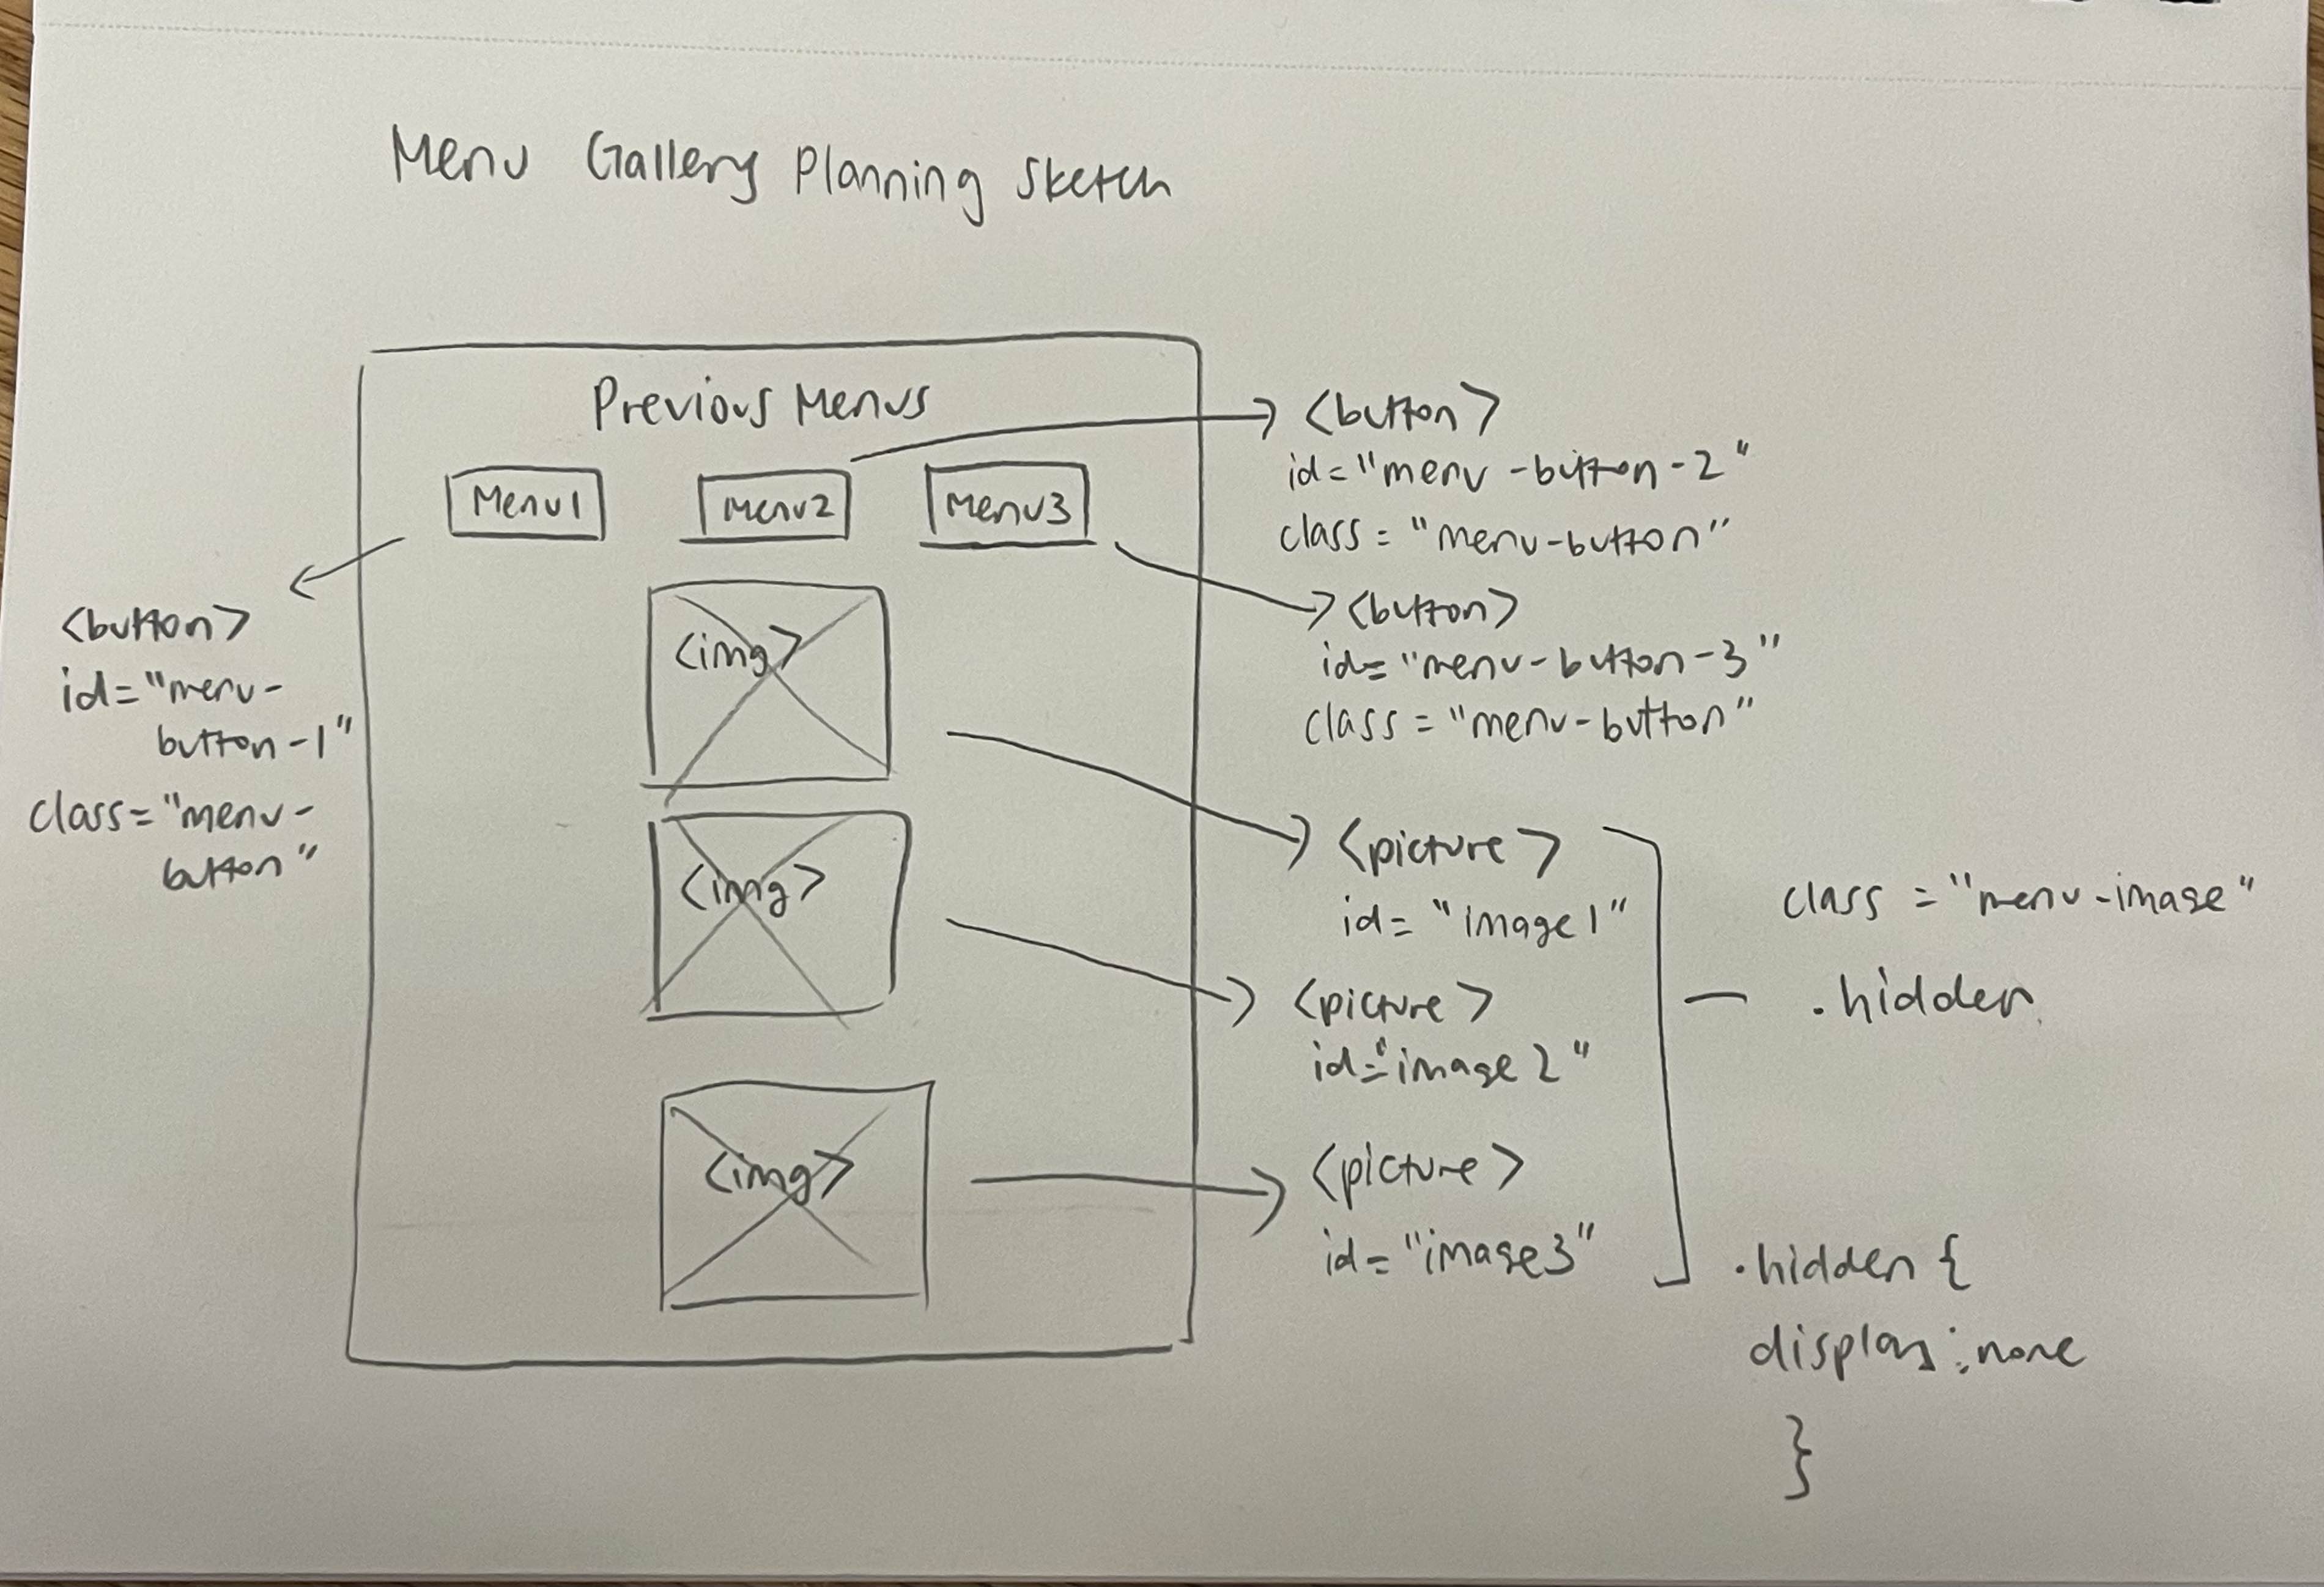 Menu Gallery Planning Sketch
Previous Menus
Menu1
Menu2
Menu3
<button>
id="menu-
button-1"
class="menu-
button"
<button>
id="menu-button-2"
class="menu-button"
<button>
id="menu-button-3"
class="menu-button"
<img>
<img>
<img>
<picture>
id="image1"
<picture>
id="image2"
<picture>
id="image3"
class="menu-image"
.hidden
.hidden {
display:none
}